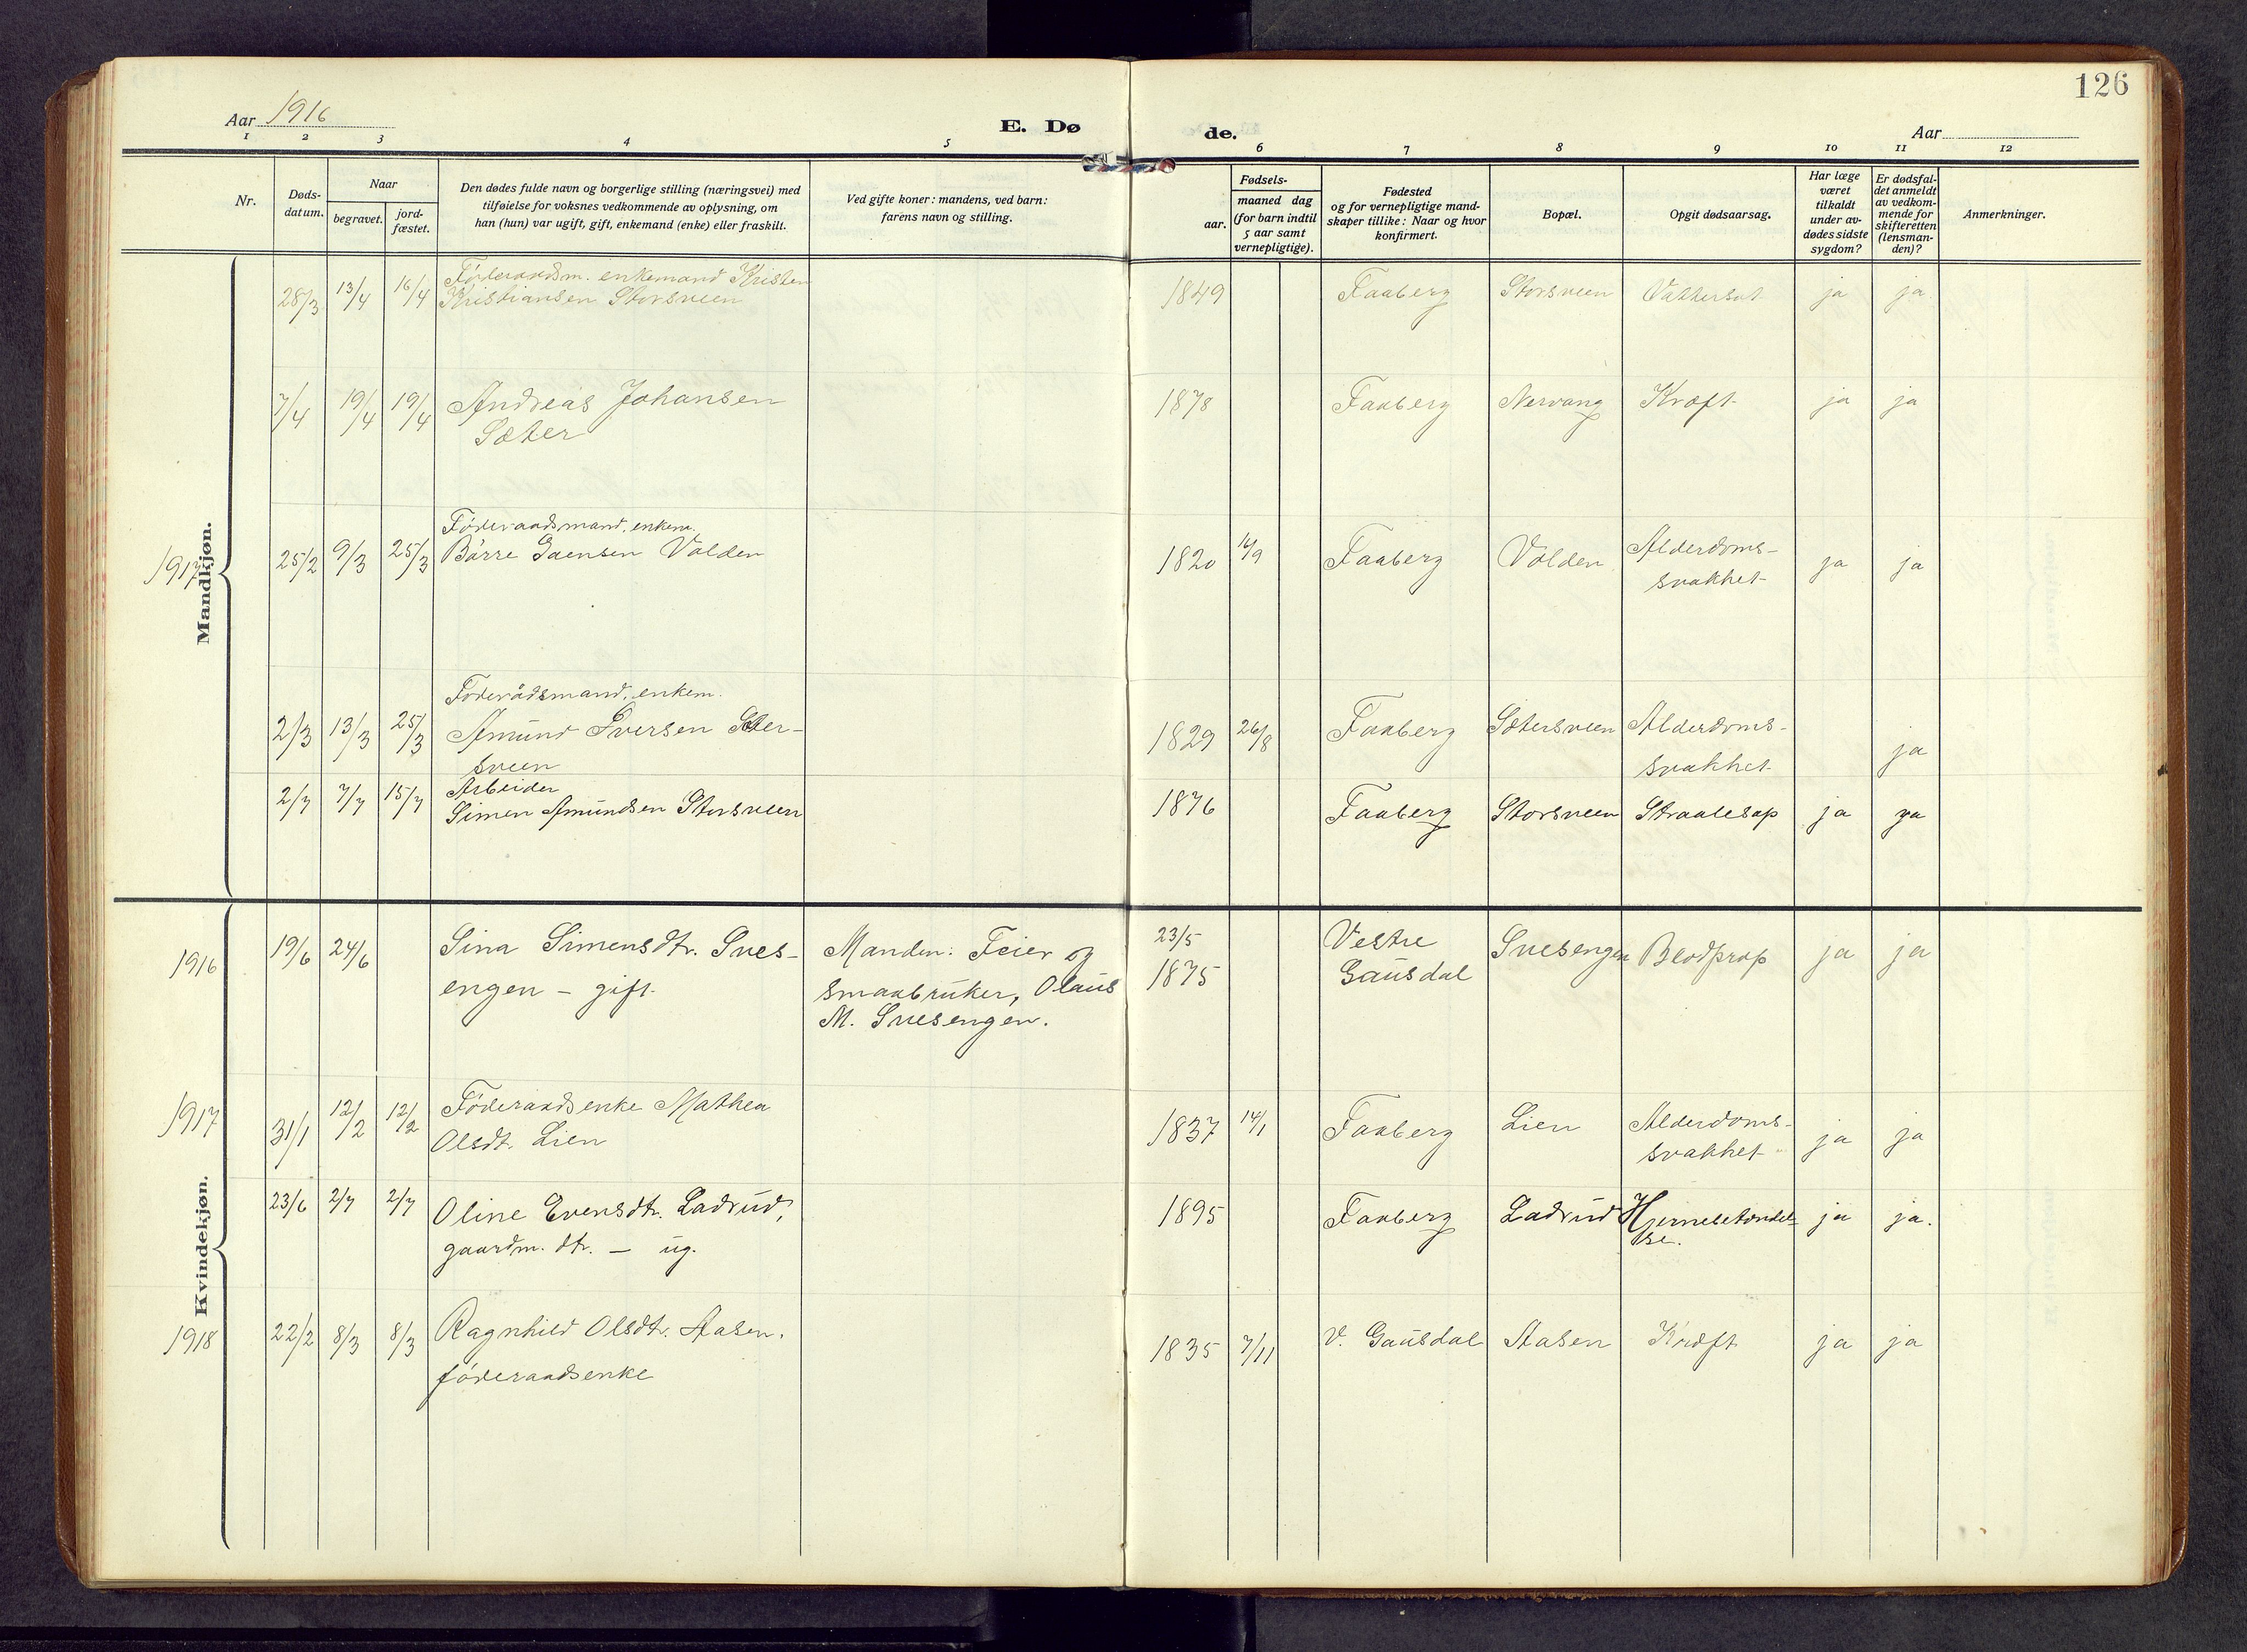 126
Aar 1916
E. Dø
de.
Aar
1 2 3 4 5 6 7 8 9 10 11 12
Nr.
Døds-
datum.
Naar
begravet.
jord-
fæstet.
Den dødes fulde navn og borgerlige stilling (næringsvei) med
tilføielse for voksnes vedkommende av oplysning, om
han (hun) var ugift, gift, enkemand (enke) eller fraskilt.
Ved gifte koner: mandens, ved barn:
farens navn og stilling.
Fødsels-
aar.
maaned dag
(for barn indtil
5 aar samt
vernepligtige).
Fødested
og for vernepligtige mand-
skaper tillike: Naar og hvor
konfirmert.
Bopæl.
Opgit dødsaarsag.
Har læge
været
tilkaldt
under av-
dødes sidste
sygdom?
Er dødsfal-
det anmeldt
av vedkom-
mende for
skifteretten
(lensman-
den)?
Anmerkninger.
Mandkjøn.
28/3 13/4 16/4 Föderaadsm. enkemand Kristen
Kristiansen Storsveen
1849 Faaberg Storsveen Vattersot ja ja
7/4 19/4 19/4 Andreas Johansen
Sæter
1878 Faaberg Nervang Kræft ja ja
1917
Föderaadsmand, enkem.
25/2 9/3 25/3 Börre Volden
1820 Faaberg Volden Alderdoms-
svakhet ja ja
Föderådsmand, enkem.
2/3 13/3 25/3 Amund Iversen Sæter-
sveen
1829 26/8 Faaberg Sætersveen Alderdoms-
svakhet ja
Arbeider
2/7 7/7 15/7 Simen Amundsen Storsveen
1876 Faaberg Storsveen Straalesop ja ja
Kvindekjøn.
1916
19/6 24/6 Sina Simensdtr. Sves-
engen – gift.
Manden: Feier og
smaabruker, Olaus
M. Svesengen.
23/5
1875
Vestre
Gausdal
Svesengen Blodprop ja ja
1917
31/1 12/2 12/2 Föderaadsenke Mathea
Olsdt. Lien
1837 14/1 Faaberg Lien Alderdoms-
svakhet ja ja
23/6 2/7 2/7 Oline Evensdtr. Ladrud,
gaardm. dtr. – ug.
1895 Faaberg Ladrud Hjernebetændel-
se. ja ja.
1918
22/2 8/3 8/3 Ragnhild Olsdtr. Aasen.
föderaadsenke
1835 7/11 V. Gausdal Aasen Kræft ja ja